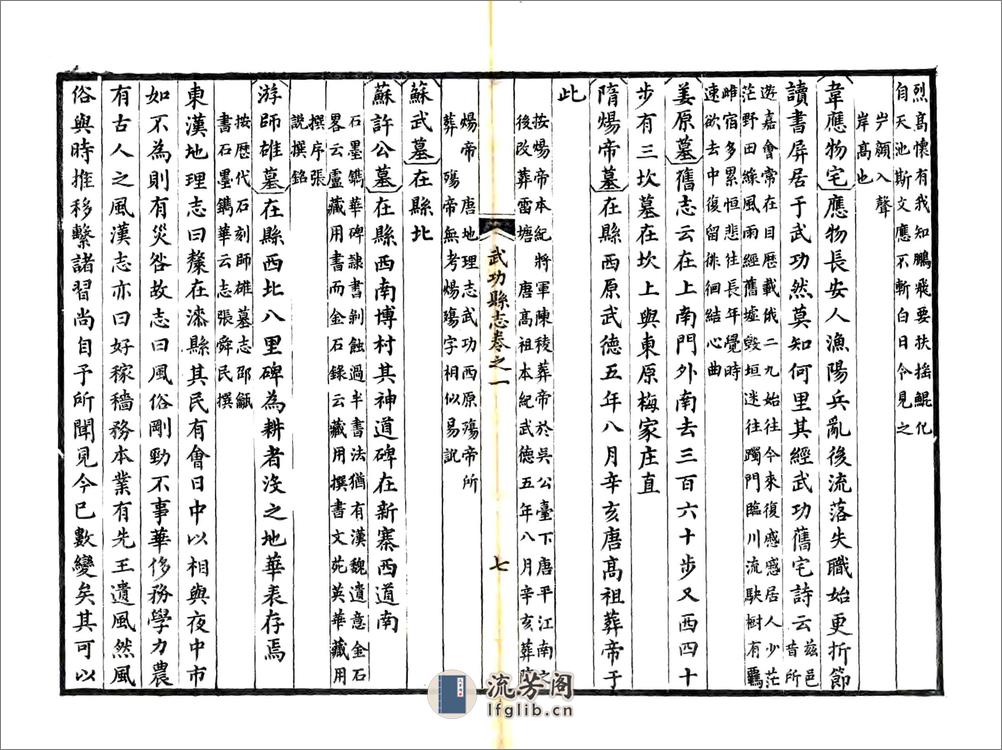 烈高懷有我知鵬飛要扶搖鯤化
自天池斯文應不斬白日今見之
屵顏入聲
岸高也
韋應物宅應物長安人漁陽兵亂後流落失職始更折節
讀書屏居于武功然莫知何里其經武功舊宅詩云茲邑
昔所
遊嘉會常在目歷載俄二九始往今來復慼慼居人少茫
茫野田緣風雨經舊墟毀垣迷往躅門臨川流駛樹有羈
雌宿多累恒悲往長年覺時
速欲去中復留徘徊結心曲
姜原墓舊志云在上南門外南去三百六十步又西四十
步有三坎墓在坎上與東原梅家庄直
隋煬帝墓在縣西原武德五年八月辛亥唐高祖葬帝于
此
按煬帝本紀將軍陳稜葬帝於吳公臺下唐平江南之
後改葬雷塘 唐高祖本紀武德五年八月辛亥葬隋
武功縣志卷之一 七
煬帝 唐地理志武功西原殤帝所
葬殤帝無考煬殤字相似易訛
蘇武墓在縣北
蘇許公墓在縣西南博村其神道碑在新寨西道南
石墨鐫華碑隸書剝蝕過半書法猶有漢魏遺意金石
畧云盧藏用書而金石錄云藏用撰書文苑英華藏用
撰序張
說撰銘
游師雄墓在縣西北八里碑為耕者沒之地華表存焉
按歷代石刻師雄墓志邵䶵
書石墨鐫華云志張舜民撰
東漢地理志曰斄在漆縣其民有會日中以相與夜中市
如不為則有災咎故志曰風俗剛勁不事華侈務學力農
有古人之風漢志亦曰好稼穡務本業有先王遺風然風
俗與時推移繫諸習尚自予所聞見今已數變矣其可以
流芳閣
lfglib.cn